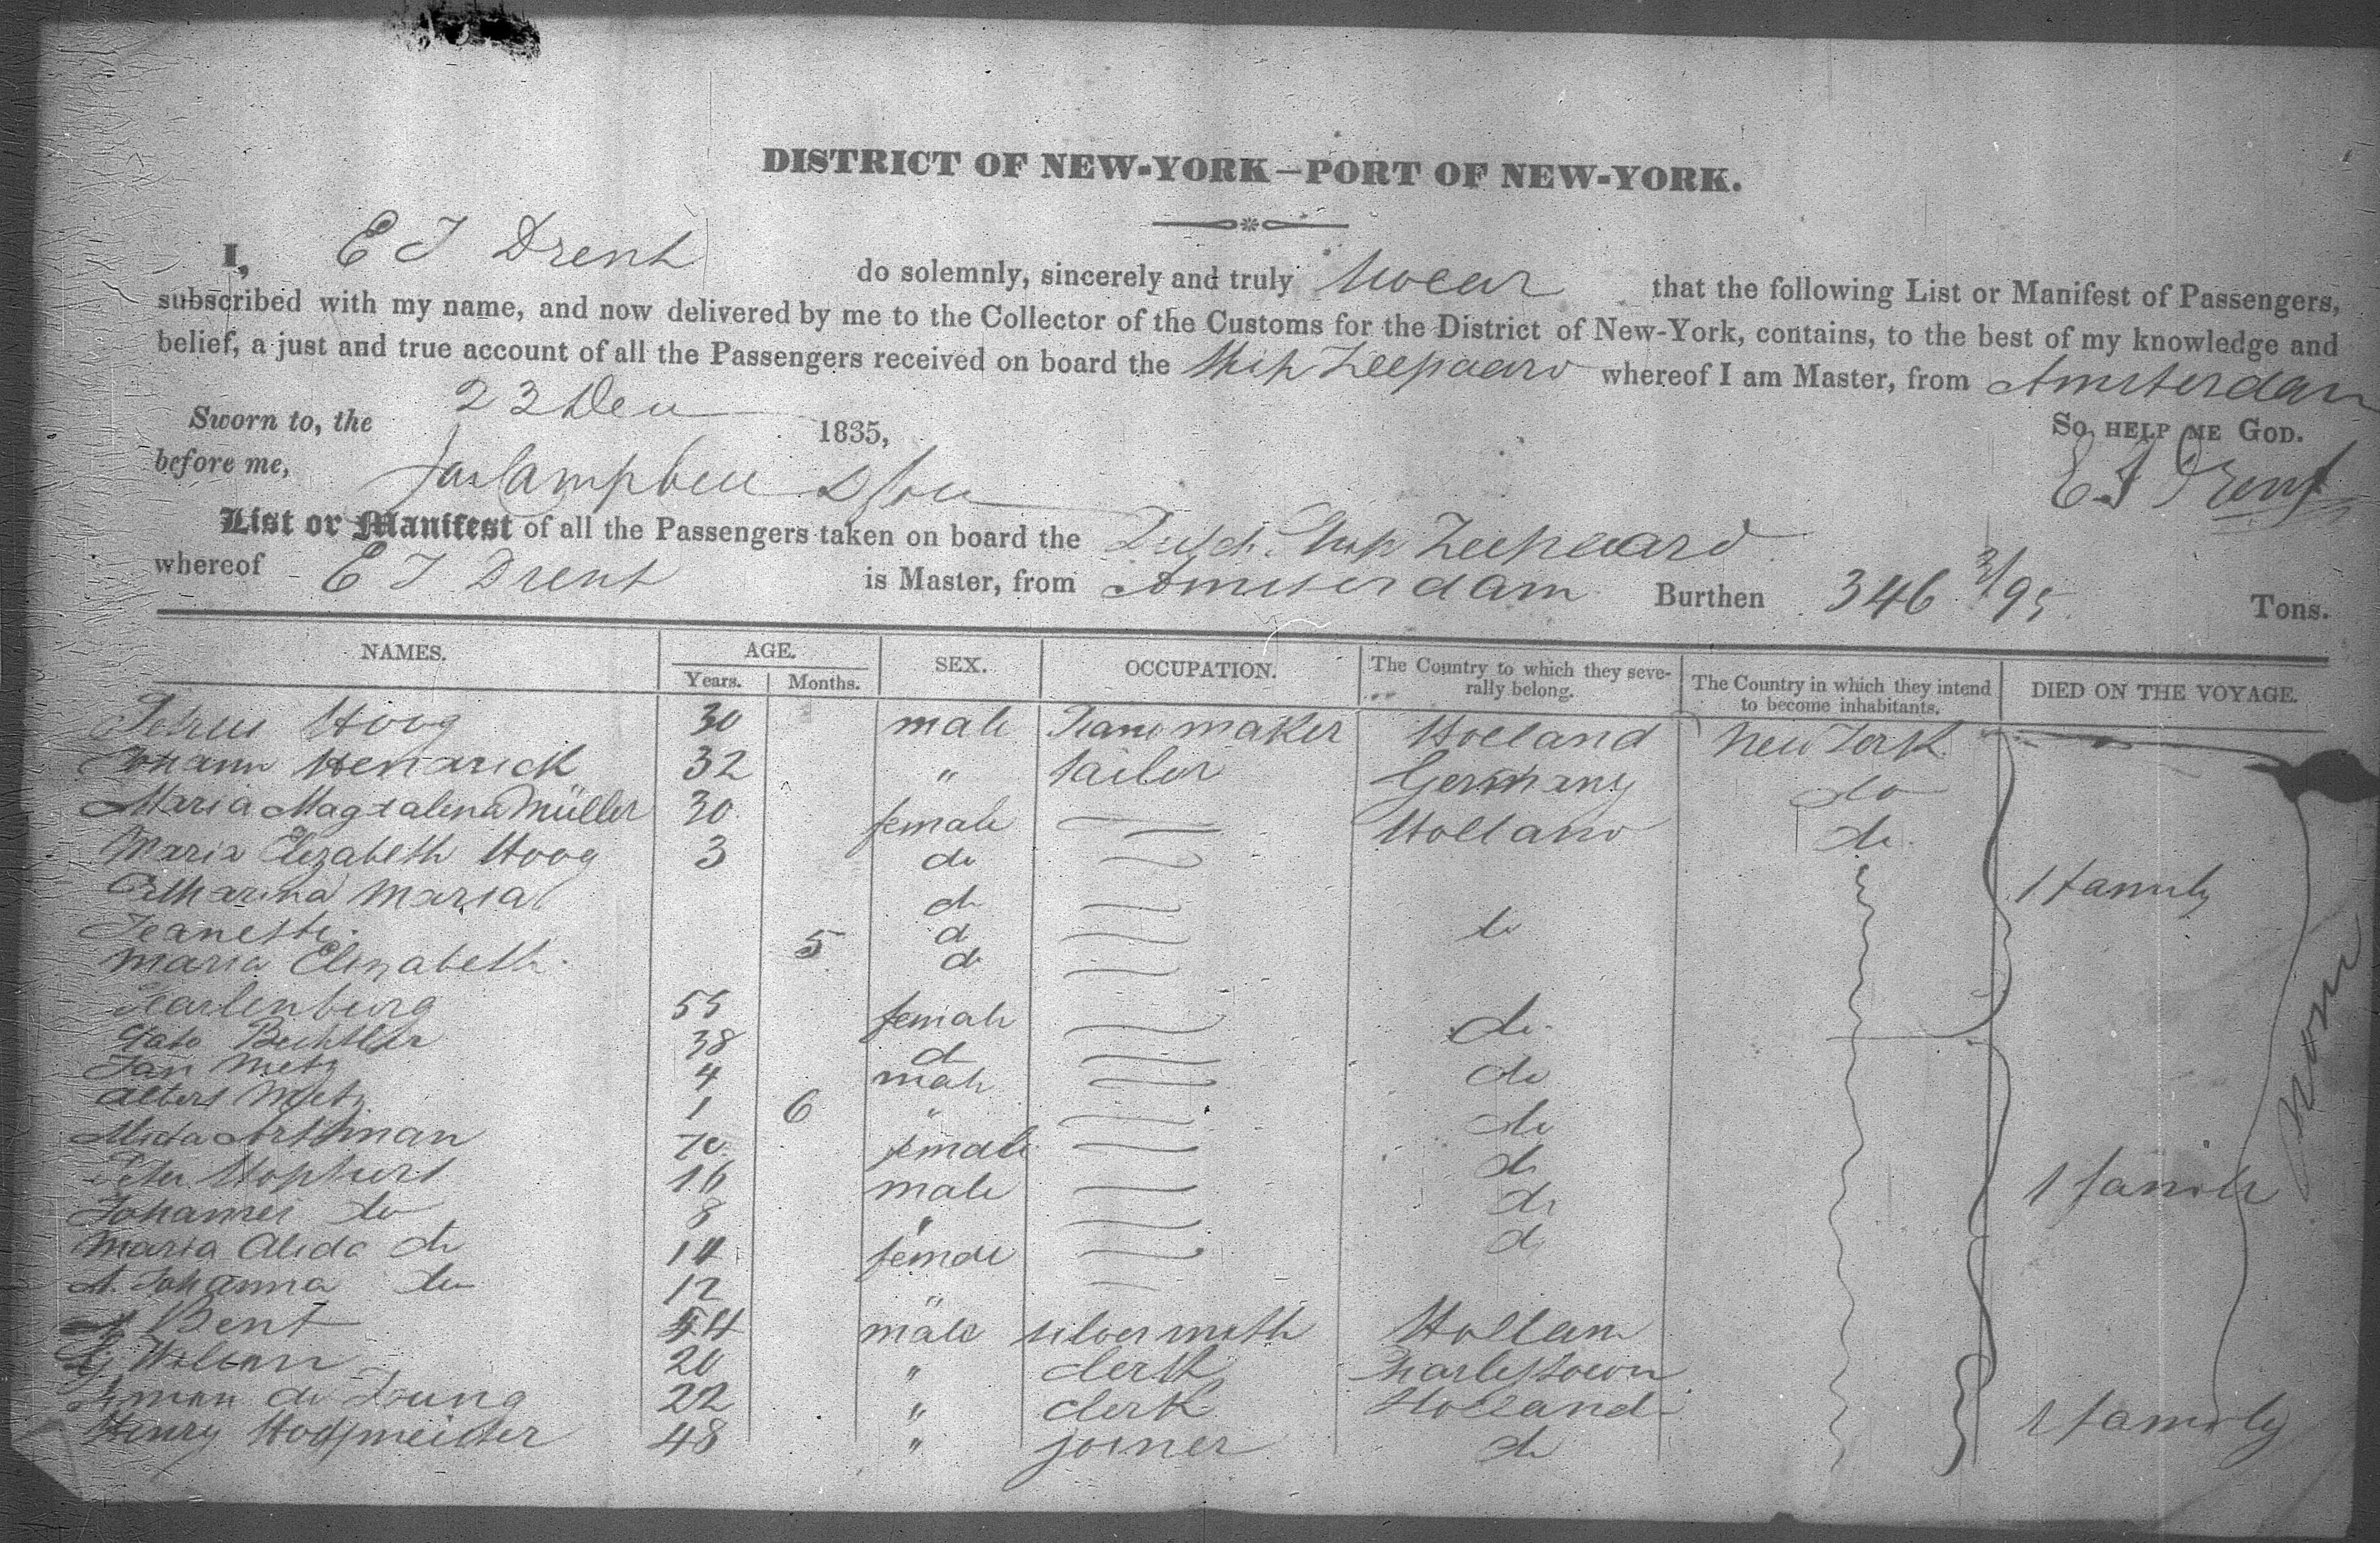 DISTRICT OF NEW-YORK—PORT OF NEW-YORK.
I, E J Drent do solemnly, sincerely and truly swear that the following List or Manifest of Passengers,
subscribed with my name, and now delivered by me to the Collector of the Customs for the District of New-York, contains, to the best of my knowledge and
belief, a just and true account of all the Passengers received on board the Ship Zeepaard whereof I am Master, from Amsterdam
Sworn to, the 23 Dec 1835, So HELP ME GOD.
before me, Jas Campbell E J Drent
List or Manifest of all the Passengers taken on board the Dutch Ship Zeepaard
whereof E J Drent is Master, from Amsterdam Burthen 346 3/95 Tons.
NAMES. AGE. Years. Months. SEX. OCCUPATION. The Country to which they severally belong. The Country in which they intend to become inhabitants. DIED ON THE VOYAGE.
Hoog 30 male Piano maker Holland New York
Johann Hendrick 32 " tailor Germany do
Maria Magdalena Müller 30 female Holland do
Maria Elizabeth Hoog 3 do
Catharina Maria do 1 family
Jeanette 5 d do
Maria Elizabeth d
Karlenburg 55 female do
Bechtler 38 d do
Jan Metz 4 male
Albert Metz 1 6 " do
Alida 70 female do
Peter 16 male do 1 family
Johannes do 8 " d
Maria Alida do 14 female
A. Johanna do 12 "
Bent 54 male silversmith Holland
20 " clerk Charlestown
Simon de Young 22 " clerk Holland 1 family
Henry 48 " joiner do
None